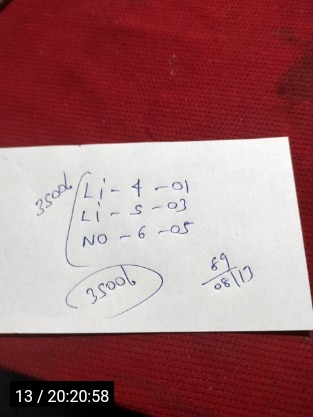 35006
Li - 4 - 01
Li - 5 - 03
NO - 6 - 05
35006
89
08/13
13 / 20:20:58